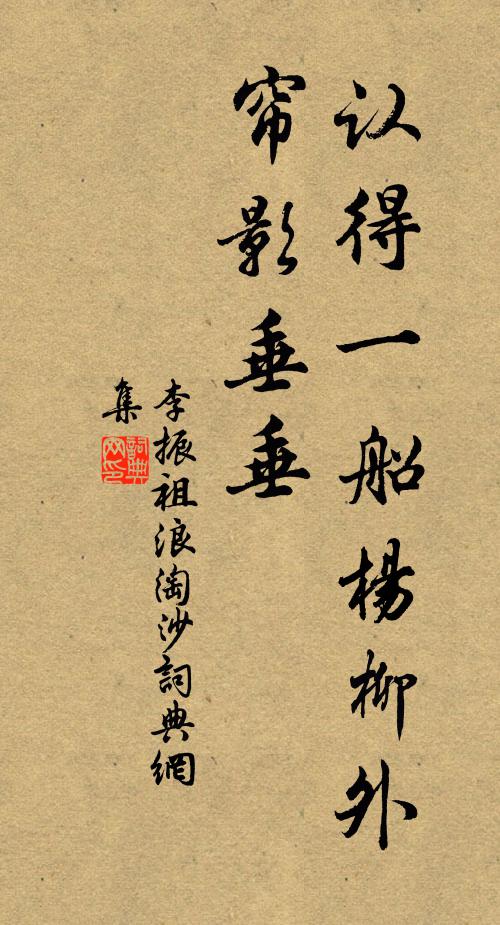 认得一船杨柳外
帘影垂垂
李振祖浪淘沙詞典網
集
詞典
网印